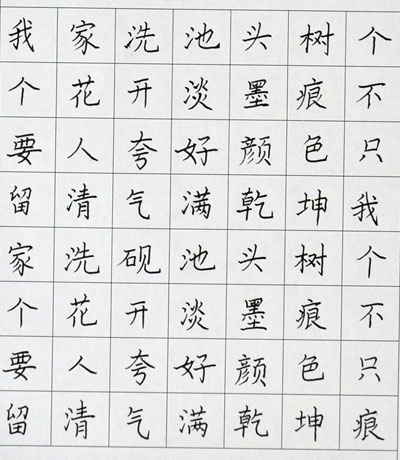 我家洗池头树个
个花开淡墨痕不
要人夸好颜色只
留清气满乾坤我
家洗砚池头树个
个花开淡墨痕不
要人夸好颜色只
留清气满乾坤痕